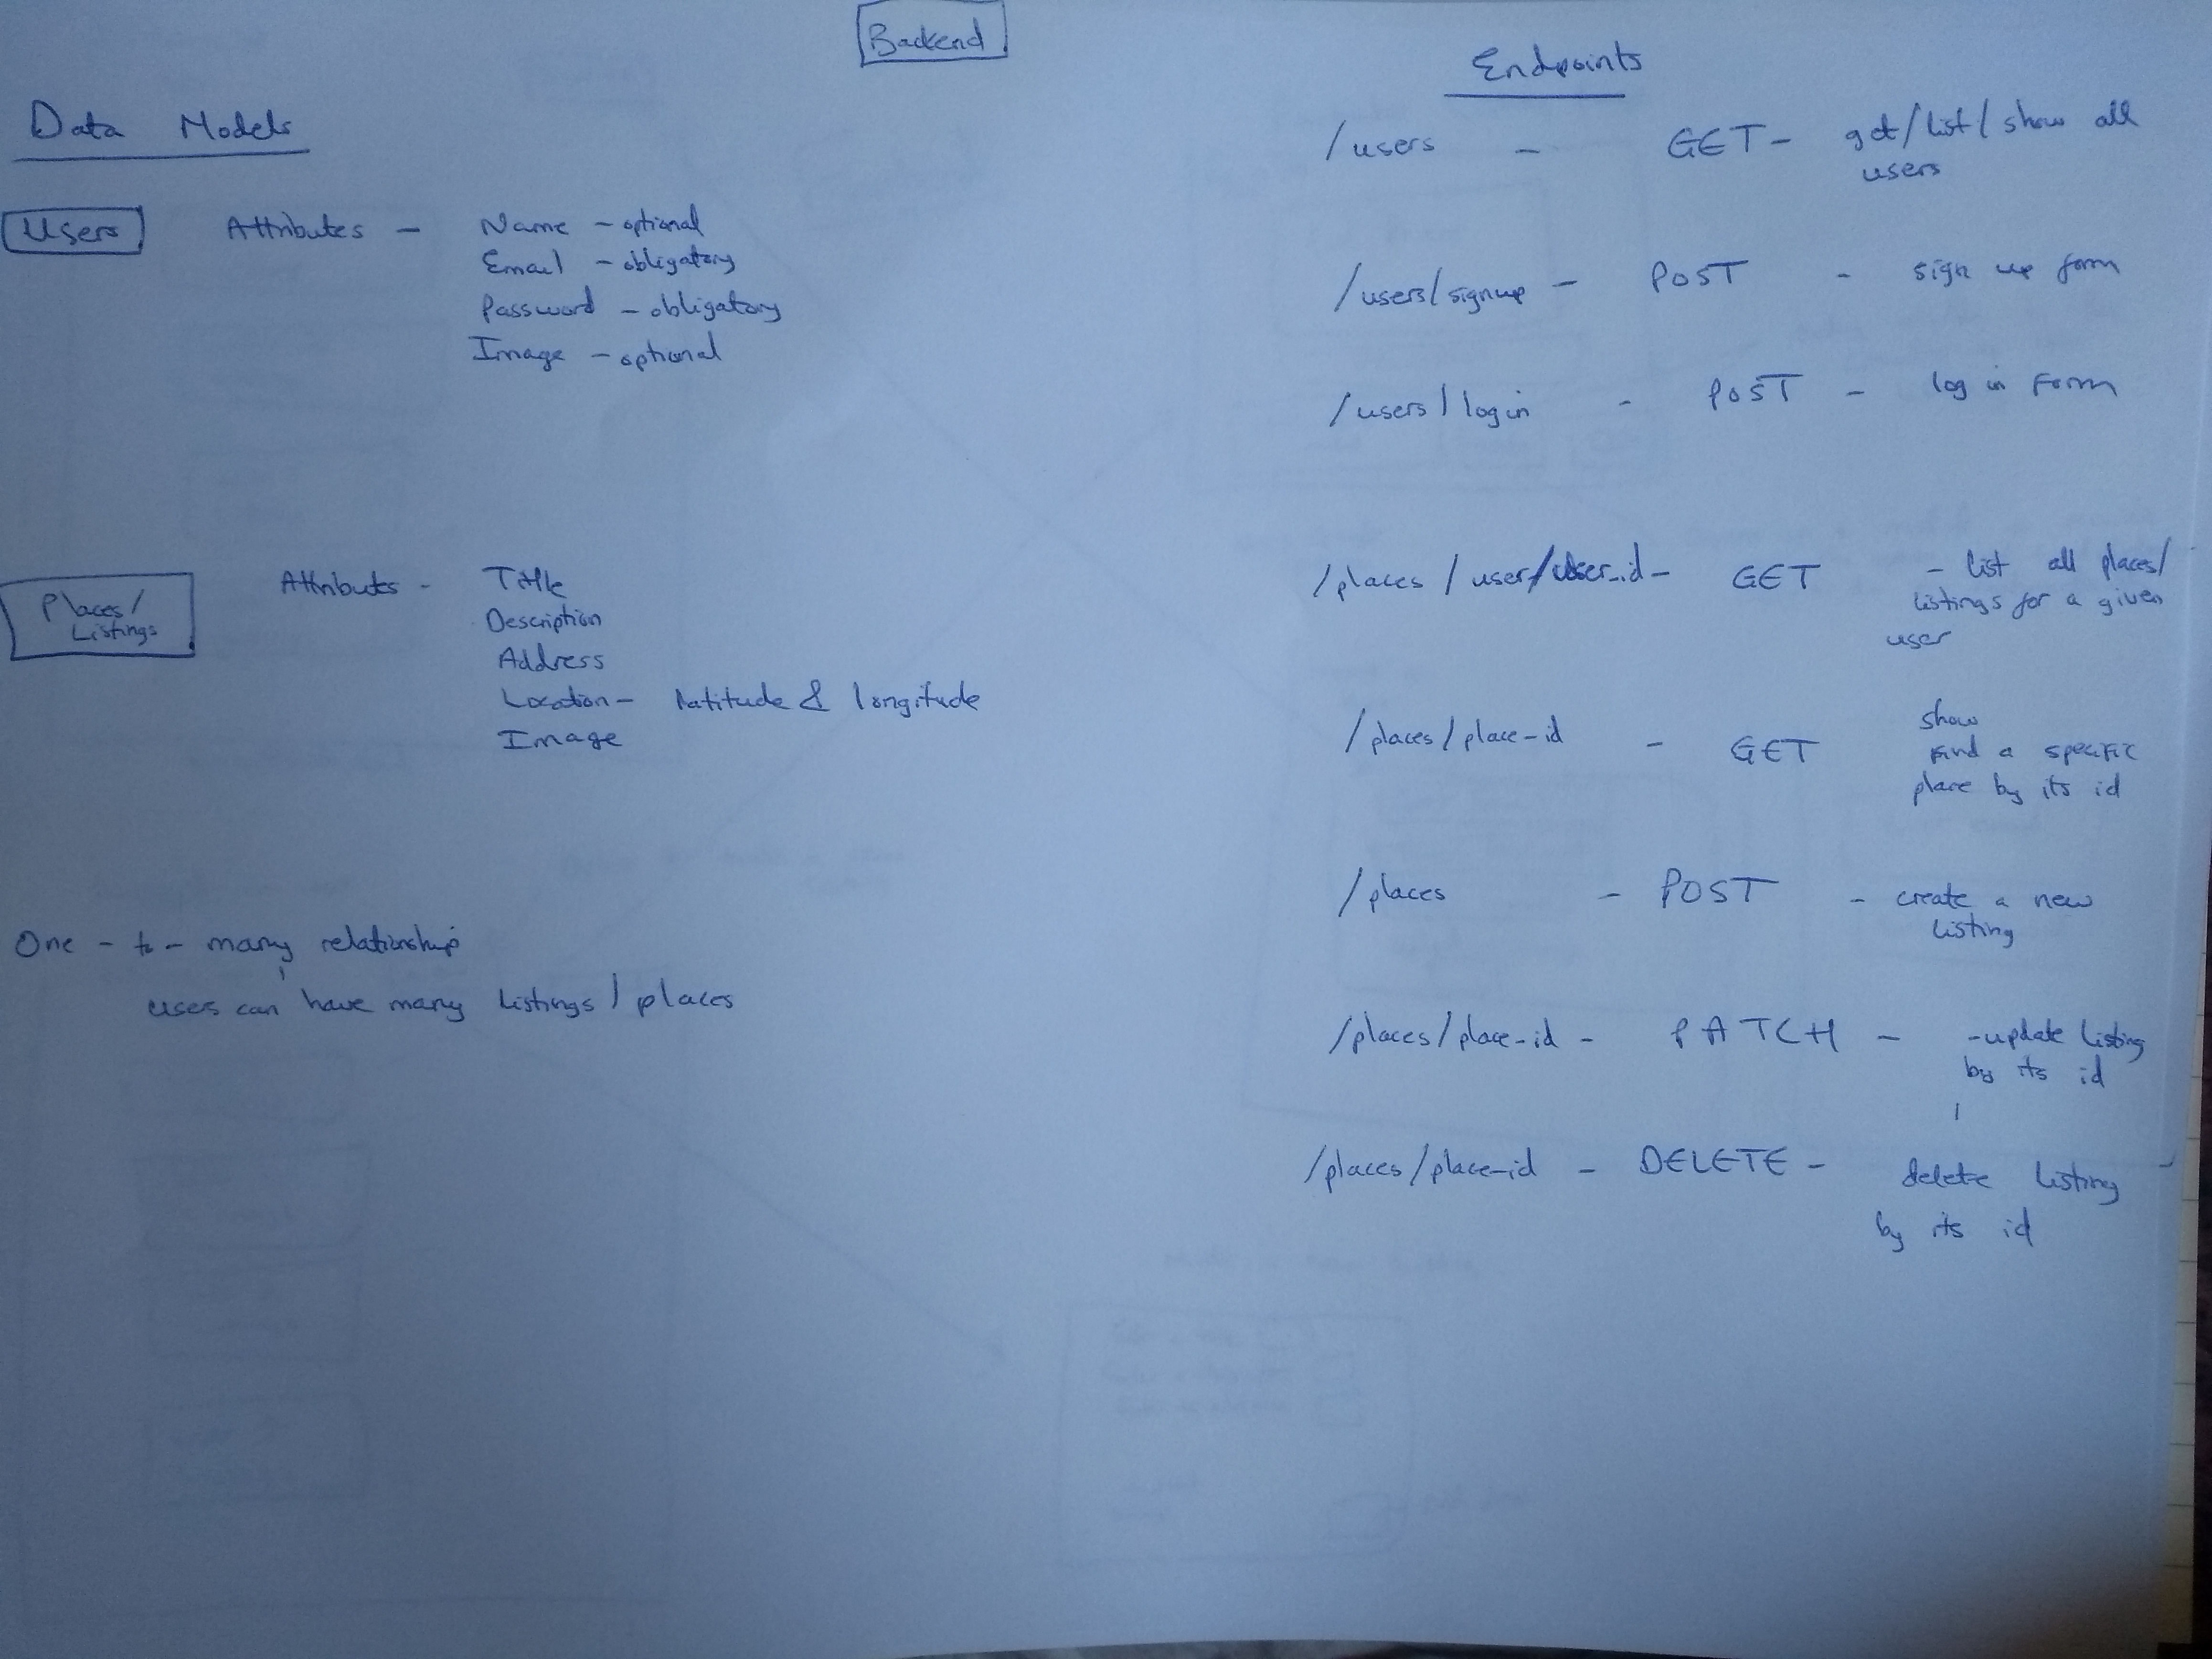 Backend
Data Models
Users Attributes - Name - optional
Email - obligatory
Password - obligatory
Image - optional
Places/
Listings
Attributes - Title
Description
Address
Location - latitude & longitude
Image
One - to - many relationship
users can have many listings / places
Endpoints
/users - GET - get/list/show all
users
/users/signup - POST - sign up form
/users/login - POST - log in form
/places/user/user_id - GET - list all places/
listings for a given
user
show
/places/place-id - GET find a specific
place by its id
/places - POST - create a new
listing
/places/place-id - PATCH - - update listing
by its id
/places/place-id - DELETE - delete listing
by its id